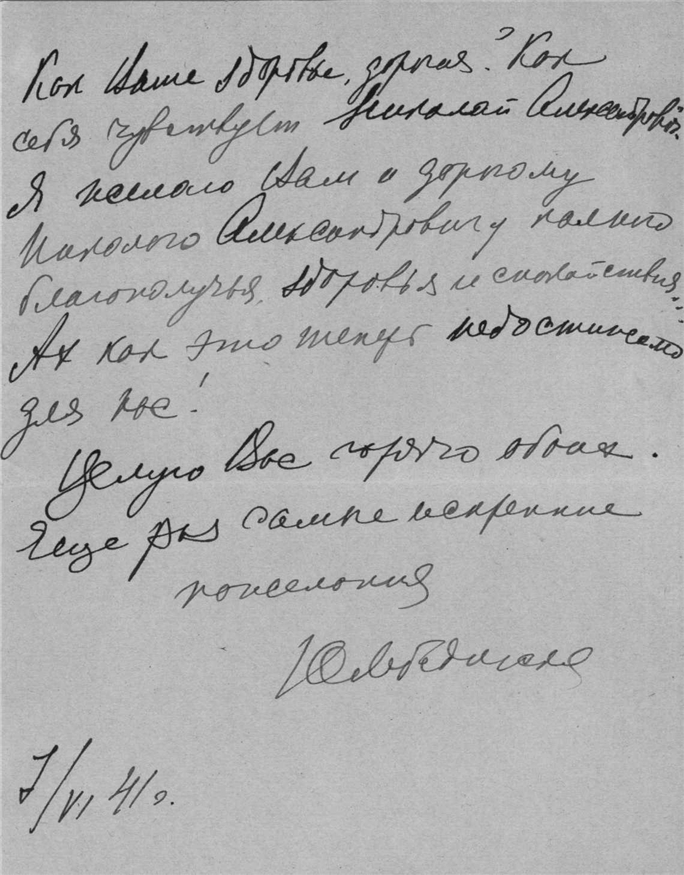 Как Ваше здоровье, дорогая? Как
себя чувствует Николай Александрович.
Я желаю Вам и дорогому
Николаю Александровичу полного
благополучья, здоровья и спокойствия...
Ах как это теперь недостижимо
для нас!
Целую Вас горячо обоих.
Еще раз самые искренние
пожелания
7/VI 41 г.